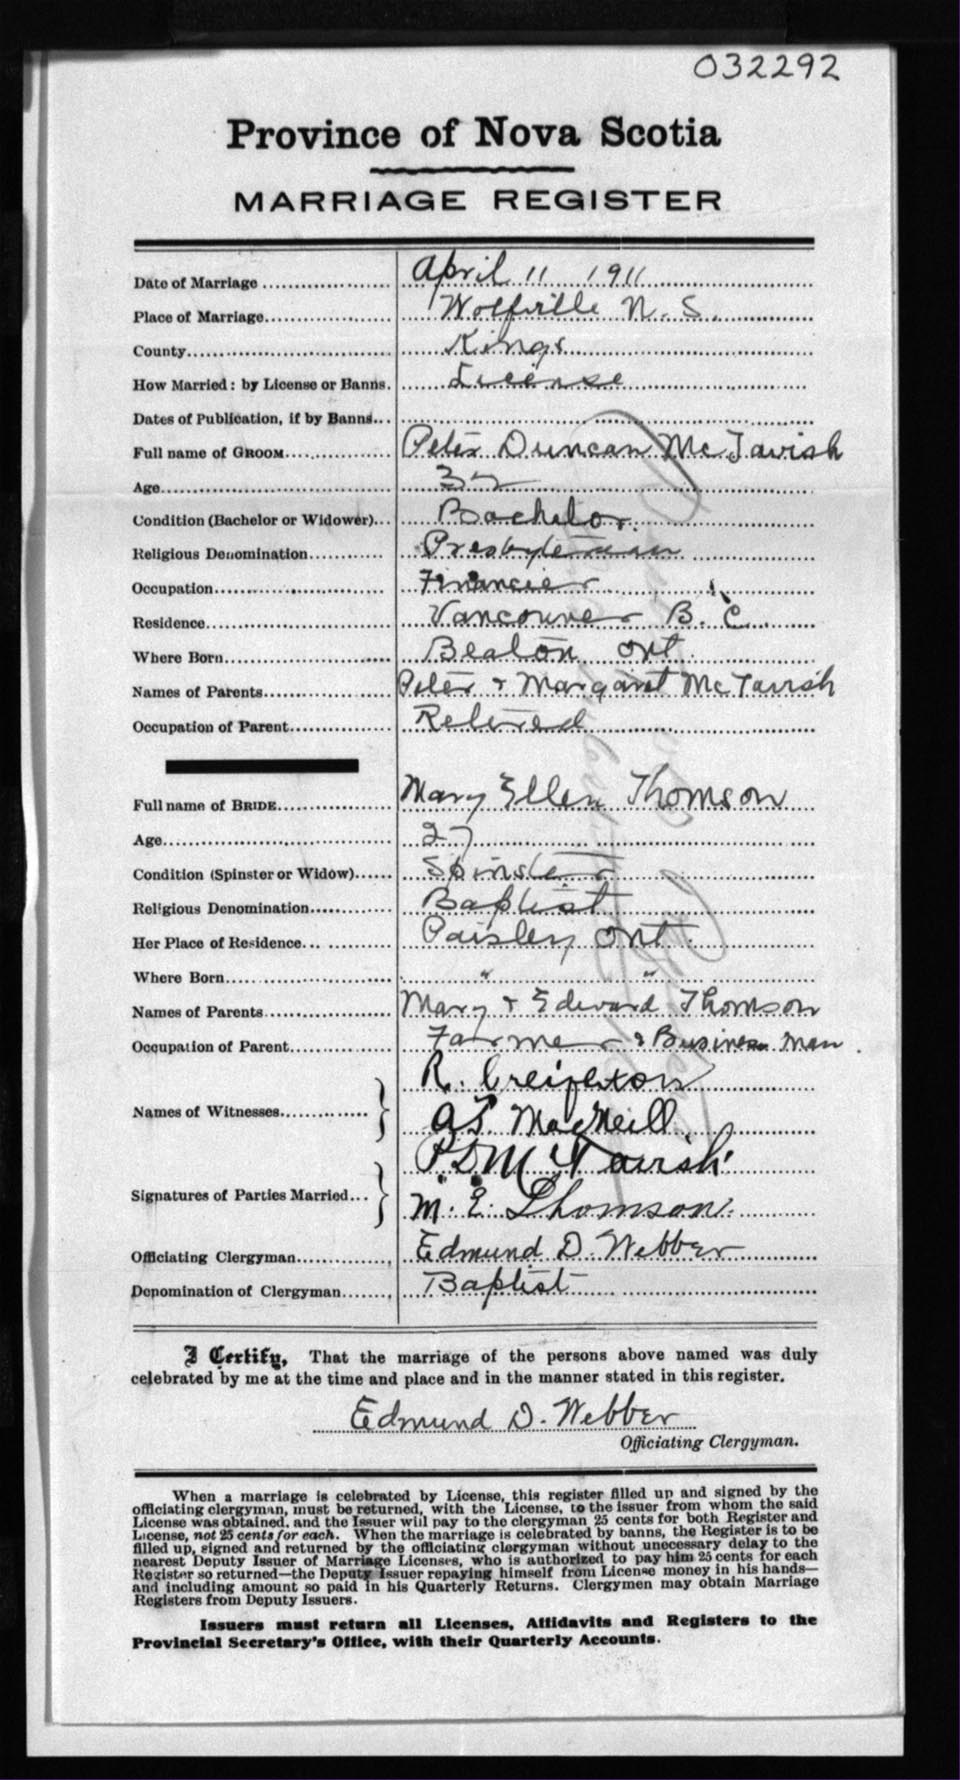 032292
Province of Nova Scotia
MARRIAGE REGISTER
Date of Marriage April 11 1911
Place of Marriage Wolfville N. S.
County Kings
How Married: by License or Banns. License
Dates of Publication, if by Banns
Full name of GROOM Peter Duncan McTavish
Age 37
Condition (Bachelor or Widower) Bachelor.
Religious Denomination Presbyterian
Occupation Financier
Residence Vancouver B. C.
Where Born Beaton Ont.
Names of Parents Peter + Margaret McTavish
Occupation of Parent Retired
Full name of BRIDE Mary Ellen Thomson
Age 27
Condition (Spinster or Widow) Spinster
Religious Denomination Baptist
Her Place of Residence Paisley Ont.
Where Born " "
Names of Parents Mary + Edward Thomson
Occupation of Parent Farmer & Business man.
Names of Witnesses R. Creighton
MacNeill
Signatures of Parties Married P. D. McTavish
M. E. Thomson.
Officiating Clergyman Edmund D. Webber
Denomination of Clergyman Baptist
I Certify, That the marriage of the persons above named was duly
celebrated by me at the time and place and in the manner stated in this register.
Edmund D. Webber
Officiating Clergyman.
When a marriage is celebrated by License, this register filled up and signed by the
officiating clergyman, must be returned, with the License, to the issuer from whom the said
License was obtained, and the Issuer will pay to the clergyman 25 cents for both Register and
License, not 25 cents for each. When the marriage is celebrated by banns, the Register is to be
filled up, signed and returned by the officiating clergyman without unecessary delay to the
nearest Deputy Issuer of Marriage Licenses, who is authorized to pay him 25 cents for each
Register so returned—the Deputy Issuer repaying himself from License money in his hands—
and including amount so paid in his Quarterly Returns. Clergymen may obtain Marriage
Registers from Deputy Issuers.
Issuers must return all Licenses, Affidavits and Registers to the
Provincial Secretary's Office, with their Quarterly Accounts.